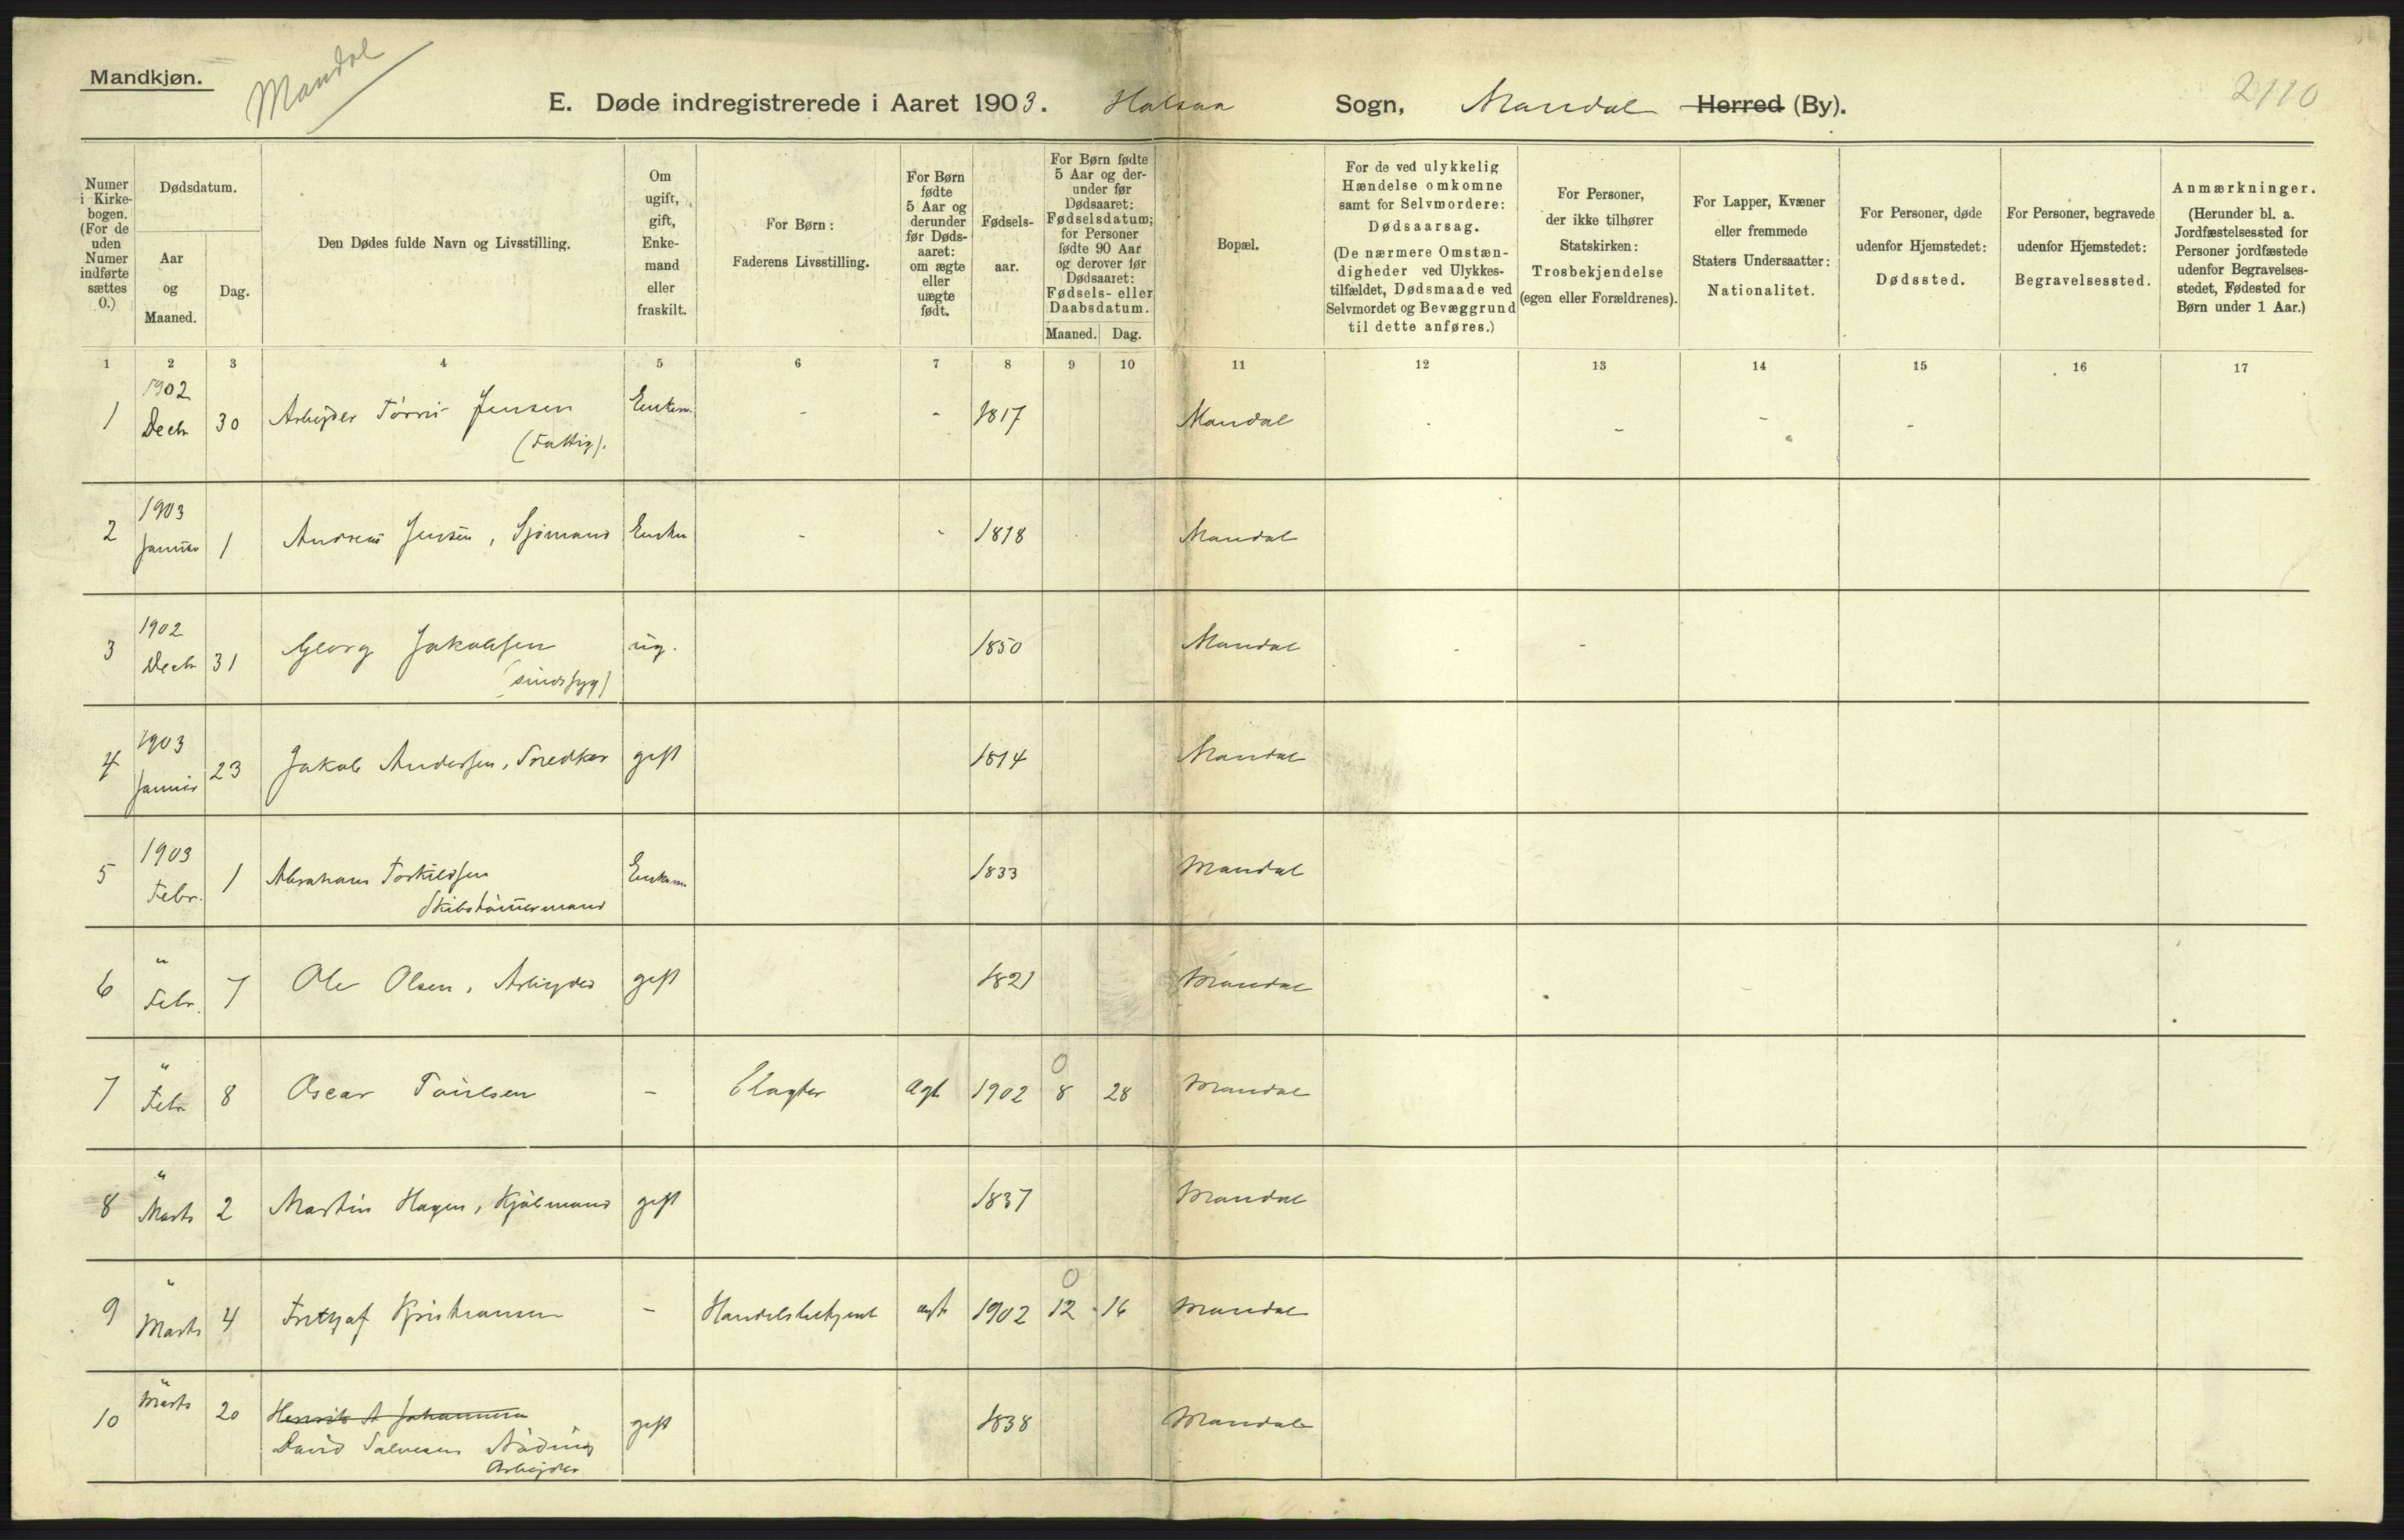 Mandkjøn.
Mandal
E. Døde indregistrerede i Aaret 1903. Halsaa Sogn, Mandal Herred (By).
2110
Numer i Kirkebogen. (For de uden Numer indførte sættes 0.)
Dødsdatum.
Aar og Maaned.
Dag.
Den Dødes fulde Navn og Livsstilling.
Om ugift, gift, Enkemand eller fraskilt.
For Børn: Faderens Livsstilling.
For Børn fødte 5 Aar og derunder før Dødsaaret: om ægte eller uægte født.
Fødselsaar.
For Børn fødte 5 Aar og derunder før Dødsaaret: Fødselsdatum; for Personer fødte 90 Aar og derover før Dødsaaret: Fødsels- eller Daabsdatum.
Maaned. Dag.
Bopæl.
For de ved ulykkelig Hændelse omkomne samt for Selvmordere: Dødsaarsag. (De nærmere Omstændigheder ved Ulykkestilfældet, Dødsmaade ved Selvmordet og Bevæggrund til dette anføres.)
For Personer, der ikke tilhører Statskirken: Trosbekjendelse (egen eller Forældrenes).
For Lapper, Kvæner eller fremmede Staters Undersaatter: Nationalitet.
For Personer, døde udenfor Hjemstedet: Dødssted.
For Personer, begravede udenfor Hjemstedet: Begravelsessted.
Anmærkninger. (Herunder bl. a. Jordfæstelsessted for Personer jordfæstede udenfor Begravelsesstedet, Fødested for Børn under 1 Aar.)
1 2 3 4 5 6 7 8 9 10 11 12 13 14 15 16 17
1902
1 Decb 30 Arbeider Tørris Jensen Enkem. - - 1817 Mandal - - - -
(Fattig).
1903
2 Januar 1 Andreas Jensen, Sjømand Enkem - - 1818 Mandal
1902
3 Decb 31 Georg Jakobsen ug. 1850 Mandal - -
(sindssyg)
1903
4 Januar 23 Jakob Andersen, Snedker gift 1814 Mandal
1903
5 Febr. 1 Abraham Torkildsen Enkem. 1833 Mandal
Skibstømmermand
"
6 Febr. 7 Ole Olsen, Arbeyder gift 1821 Mandal
" 0
7 Febr 8 Oscar Paulsen - Slagter ægt 1902 8 28 Mandal
"
8 Marts 2 Martin Hagen, Kjøbmand gift 1837 Mandal
" 0
9 Marts 4 Fritjaf Kristiansen - Handelsbetjent ægt 1902 12 16 Mandal
"
10 Marts 20 Henrik A Johannesen gift 1838 Mandal
David Salvesen
Arbeyder